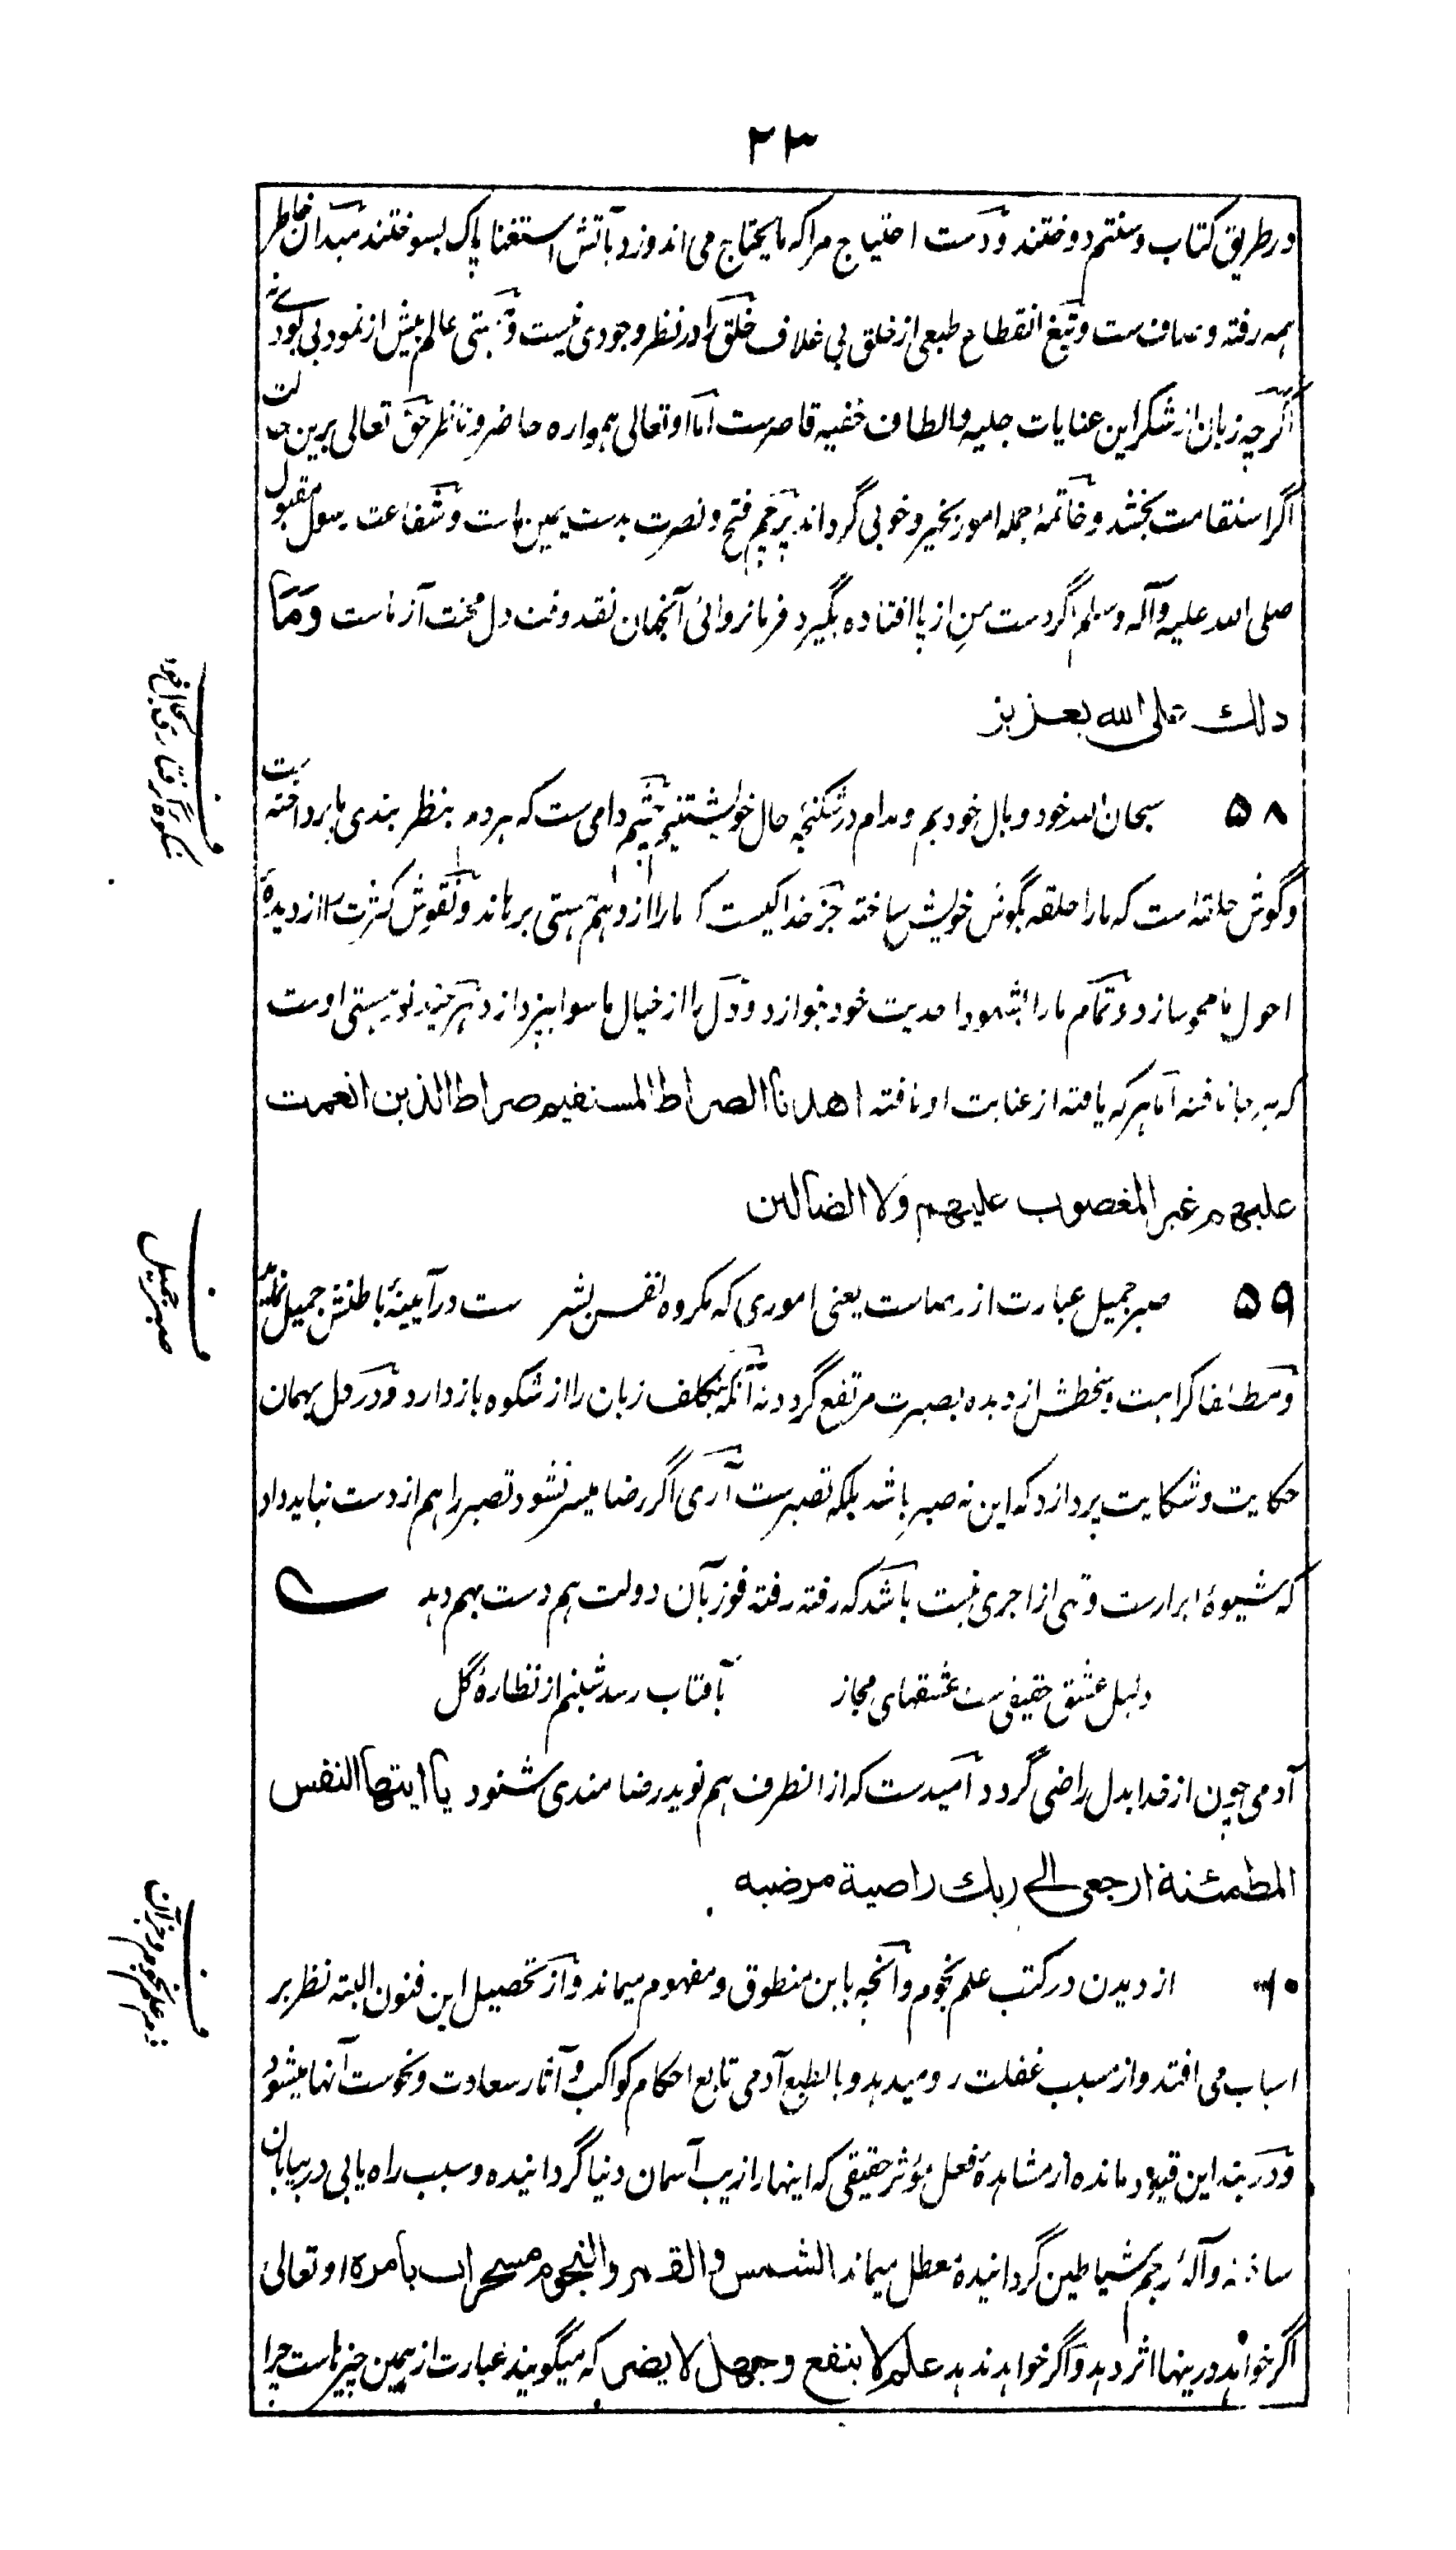 ۲۳
در طریق کتاب و سنتم دوختند و دست احتیاج مرا که مایحتاج می اندوزد بآتش استغنا پاک بسوختند میدان خاطر
همه رفته و صاف ست و تیغ انقطاع طبعی از خلق بی غلاف خلق را در نظر وجودی نیست و هستی عالم بیش از نمود بی بودی نه
اگرچه زبان از شکر این عنایات جلیه و الطاف خفیه قاصرست اما او تعالی همواره حاضر و ناظر حق تعالی برین حالت
اگر استقامت بخشد و خاتمهٔ جمله امور بخیر و خوبی گرداند پرچم فتح و نصرت بدست یمین ماست و شفاعت رسول مقبول
صلی الله علیه و آله و سلم اگر دست من از پا افتاده بگیرد فرمانروائی آنجهان نقد وقت دل محنت آزماست وَمَا
ذلك على الله بعزيز
۵۸ سبحان الله خود وبال خودیم و مدام در شکنجهٔ حال خویشتنیم چشم دامی ست که هر دم بنظر بندی ما پرداخته است
و گوش حلقه است که ما را حلقه بگوش خویش ساخته جز خدا کیست که ما را از وهم هستی برهاند و نقوش کثرت را از دیدهٔ
احول ما محو سازد و تمام ما را بشهود احدیت خود بنوازد و دل را از خیال ماسوا بپردازد هر چند نور هستی اوست
که همه جا تافته اما هر که یافته از عنایت او یافته اهدنا الصراط المستقيم صراط الذين انعمت
عليهم غير المغضوب عليهم ولا الضالين
۵۹ صبر جمیل عبارت از رضاست یعنی اموری که مکروه نفس بشر ست در آیینهٔ باطنش جمیل نماید
و کراهت و سخطش از دیده بصیرت مرتفع گردد نه آنکه بتکلف زبان را از شکوه باز دارد و در دل بهمان
حکایت و شکایت پردازد که این نه صبر باشد بلکه تصبر ست آری اگر رضا میسر نشود تصبر را هم از دست نباید داد
که شیوهٔ ابرارست و تهی از اجری نیست باشد که رفته رفته فوز بآن دولت هم دست بهم دهد
دلیل عشق حقیقی ست عشقهای مجاز بآفتاب رسد شبنم از نظارهٔ گل
آدمی چون از خدا بدل راضی گردد امیدست که از انطرف هم نوید رضامندی شنود يا ايتها النفس
المطمئنة ارجعى الى ربك راضية مرضيه
۶۰ از دیدن در کتب علم نجوم و آنچه باین منطوق و مفهوم میماند و از تحصیل این فنون البته نظر بر
اسباب می افتد و از مسبب غفلت رو میدهد و بالطبع آدمی تابع احکام کواکب و آثار سعادت و نحوست آنها میشود
و در بند این قیود مانده از مشاهدهٔ فعل مؤثر حقیقی که اینها را زیب آسمان دنیا گردانیده و سبب راه یابی در بیابان
ساخته و آلهٔ رجم شیاطین گردانیده معطل میماند الشمس والقمر والنجوم مسخرات بامره او تعالی
اگر خواهد درینها اثر دهد و اگر خواهد ندهد علم لا ينفع وجهل لا يضر که میگویند عبارت از همین چیزهاست چرا
شکوه گرفتاری بحال خود
صبر جمیل
ذم علم نجوم و جز آن